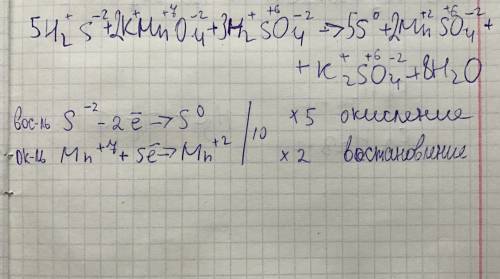 5H₂⁺S⁻²+2K⁺Mn⁺⁷O₄⁻²+3H₂⁺S⁺⁶O₄⁻²→5S⁰+2Mn⁺²S⁺⁶O₄⁻²+
+K₂⁺S⁺⁶O₄⁻²+8H₂O
вос-ль S⁻² - 2ē → S⁰ | 10 ×5 окисление
ок-ль Mn⁺⁷ + 5ē → Mn⁺² | ×2 востановление